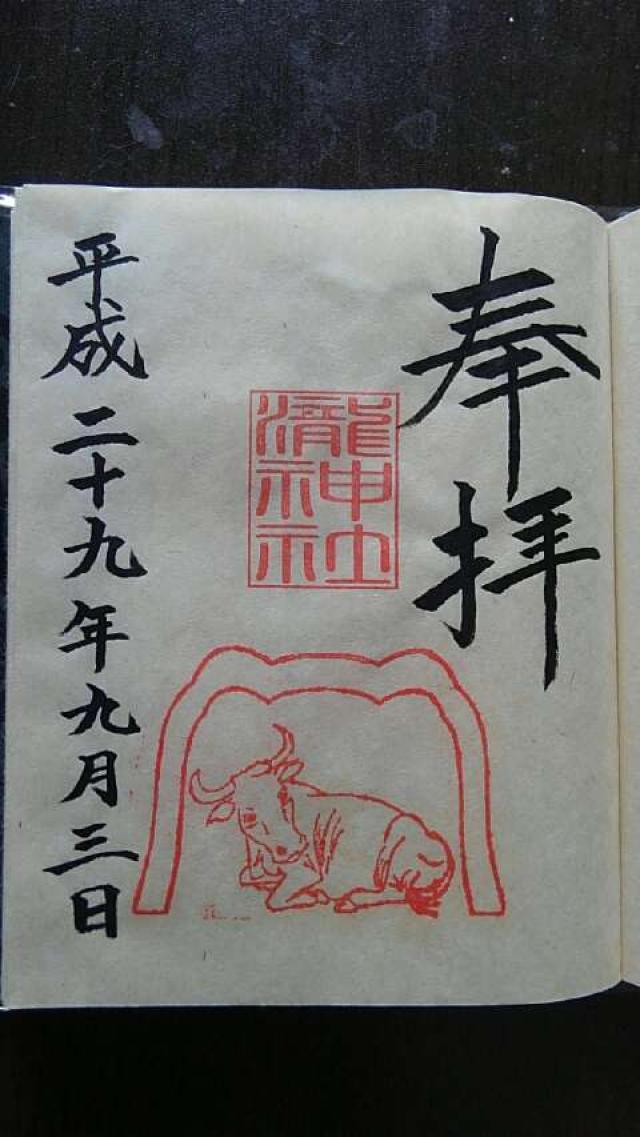 奉拝
瀧神社
平成二十九年九月三日